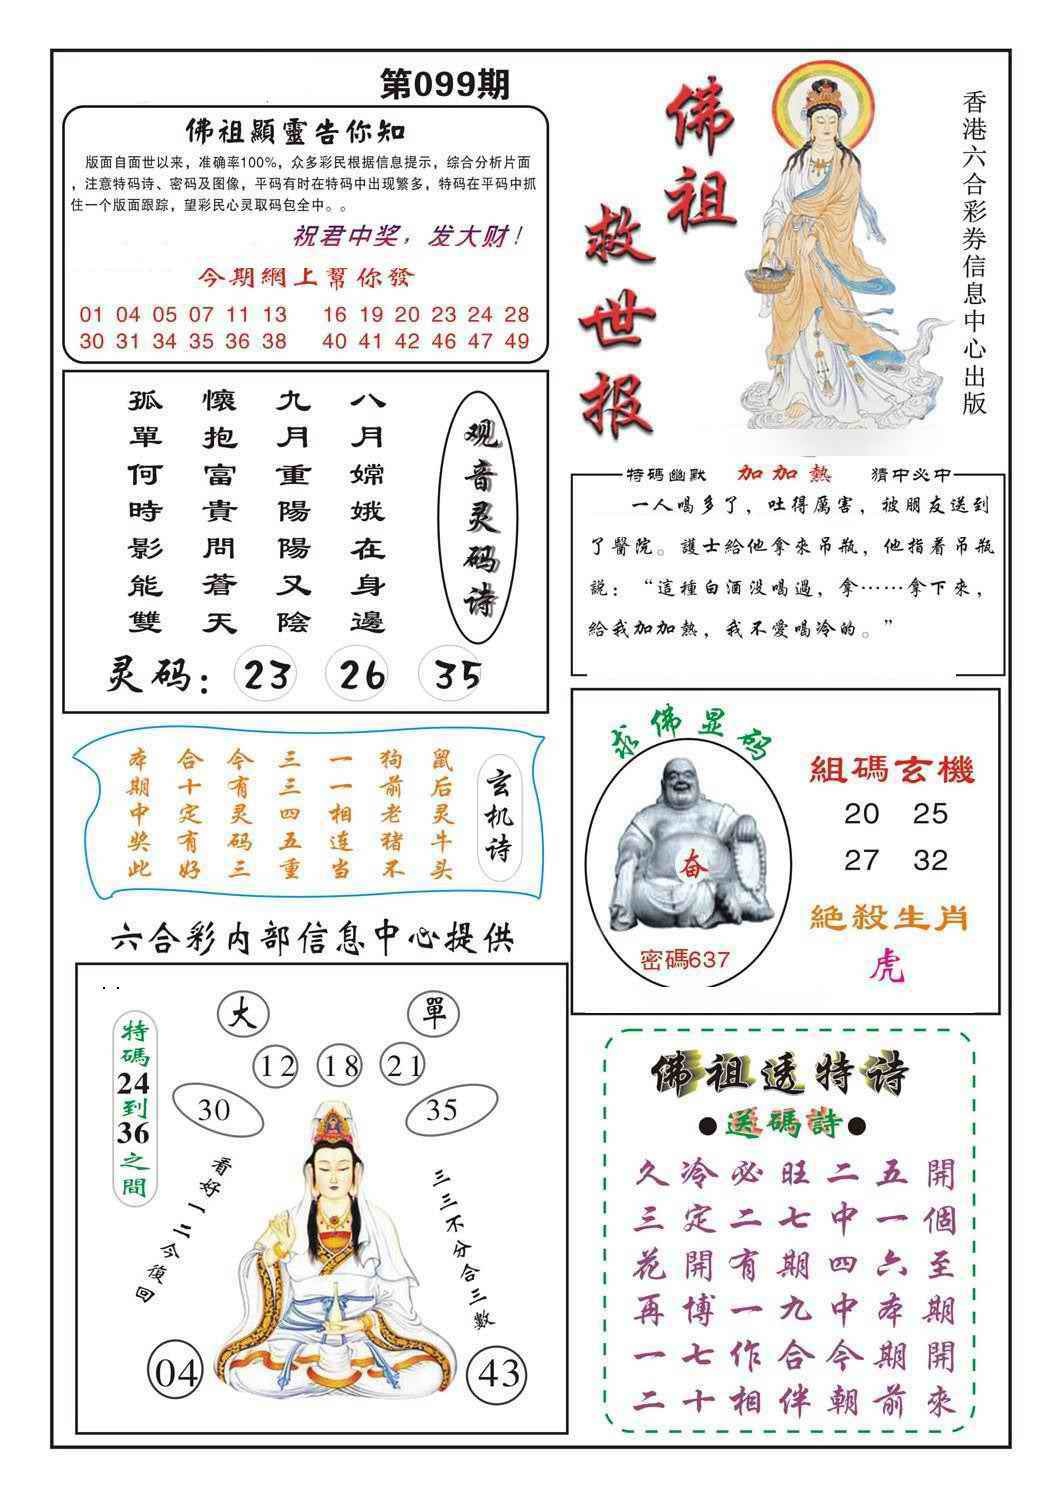 第099期
佛祖顯靈告你知
版面自面世以来，准确率100%，众多彩民根据信息提示，综合分析片面
，注意特码诗、密码及图像，平码有时在特码中出现繁多，特码在平码中抓
住一个版面跟踪，望彩民心灵取码包全中。。
祝君中奖，发大财！
今期網上幫你發
01 04 05 07 11 13 16 19 20 23 24 28
30 31 34 35 36 38 40 41 42 46 47 49
佛祖
救世报
香港六合彩券信息中心出版
观音灵码诗
八月嫦娥在身邊
九月重陽陽又陰
懷抱富貴問蒼天
孤單何時影能雙
灵码：23 26 35
特碼幽默 加加熱 猜中必中
一人喝多了，吐得厲害，被朋友送到
了醫院。護士給他拿來吊瓶，他指着吊瓶
説：“這種白酒没喝過，拿……拿下來，
給我加加熱，我不愛喝冷的。”
玄机诗
鼠后灵牛头
狗前老猪不
一一相连当
三三四五重
今有灵码三
合十定有好
本期中奖此
求佛显码
奋
密碼637
組碼玄機
20 25
27 32
絕殺生肖
虎
六合彩内部信息中心提供
大
單
12 18 21
30
35
特碼24到36之間
看好一二今復回
三三不分合三數
04
43
佛祖透特诗
●送碼詩●
久冷必旺二五開
三定二七中一個
花開有期四六至
再博一九中本期
一七作合今期開
二十相伴朝前來